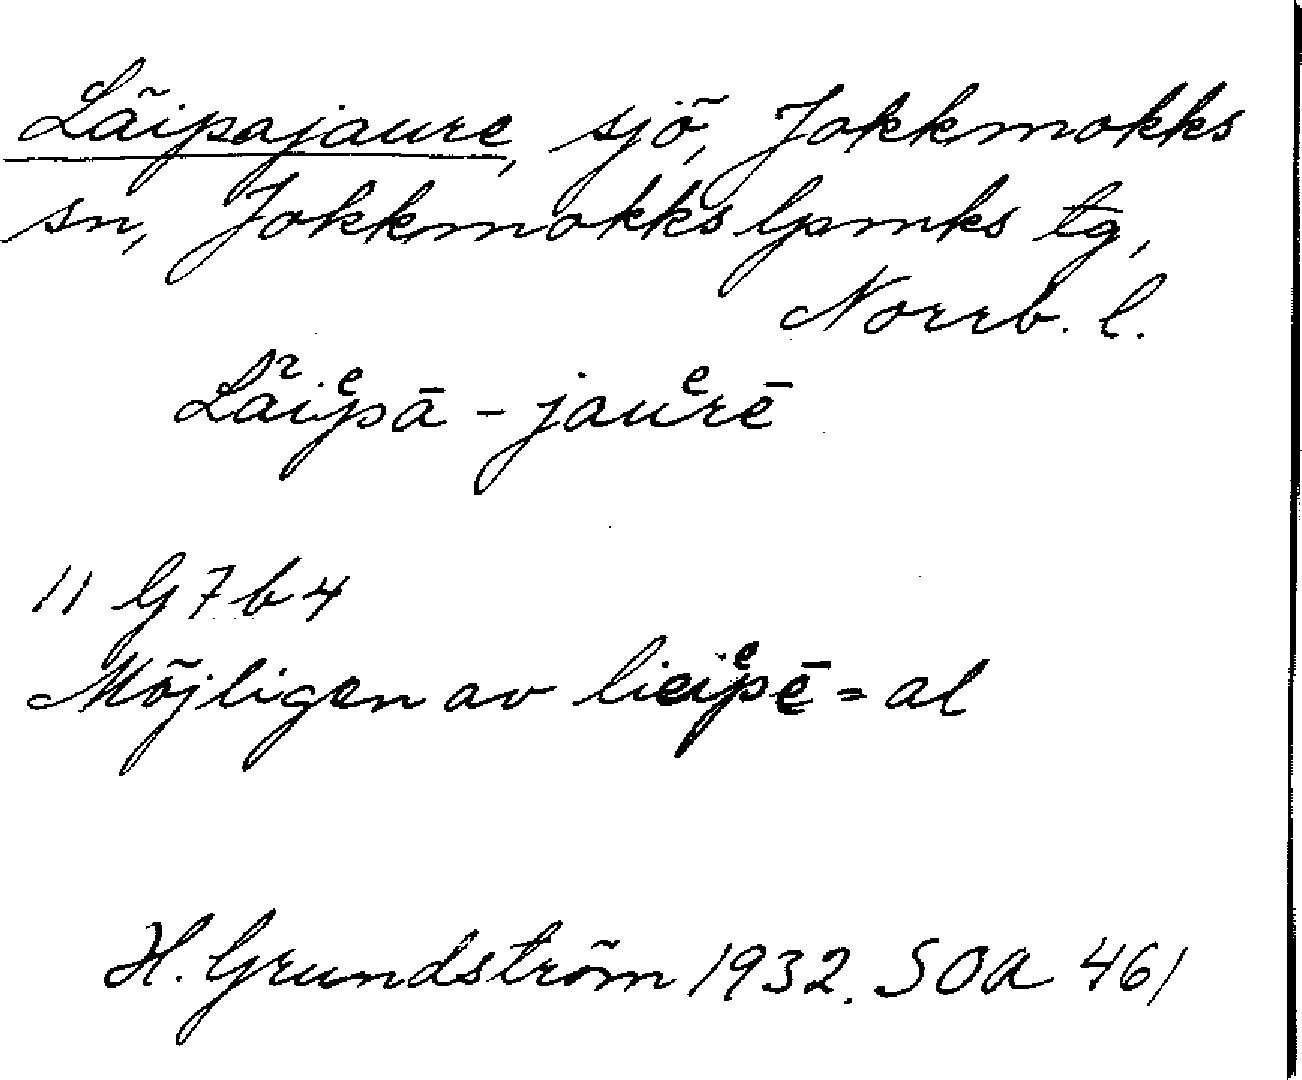 Läipajaure, sjö, Jokkmokks
sn, Jokkmokks lpmks tg,
Norrb. l.
Läiᵉpā - jauᵉrē
11 G 7 b 4
Möjligen av lieiᵉpē = al
H. Grundström 1932. SOA 461